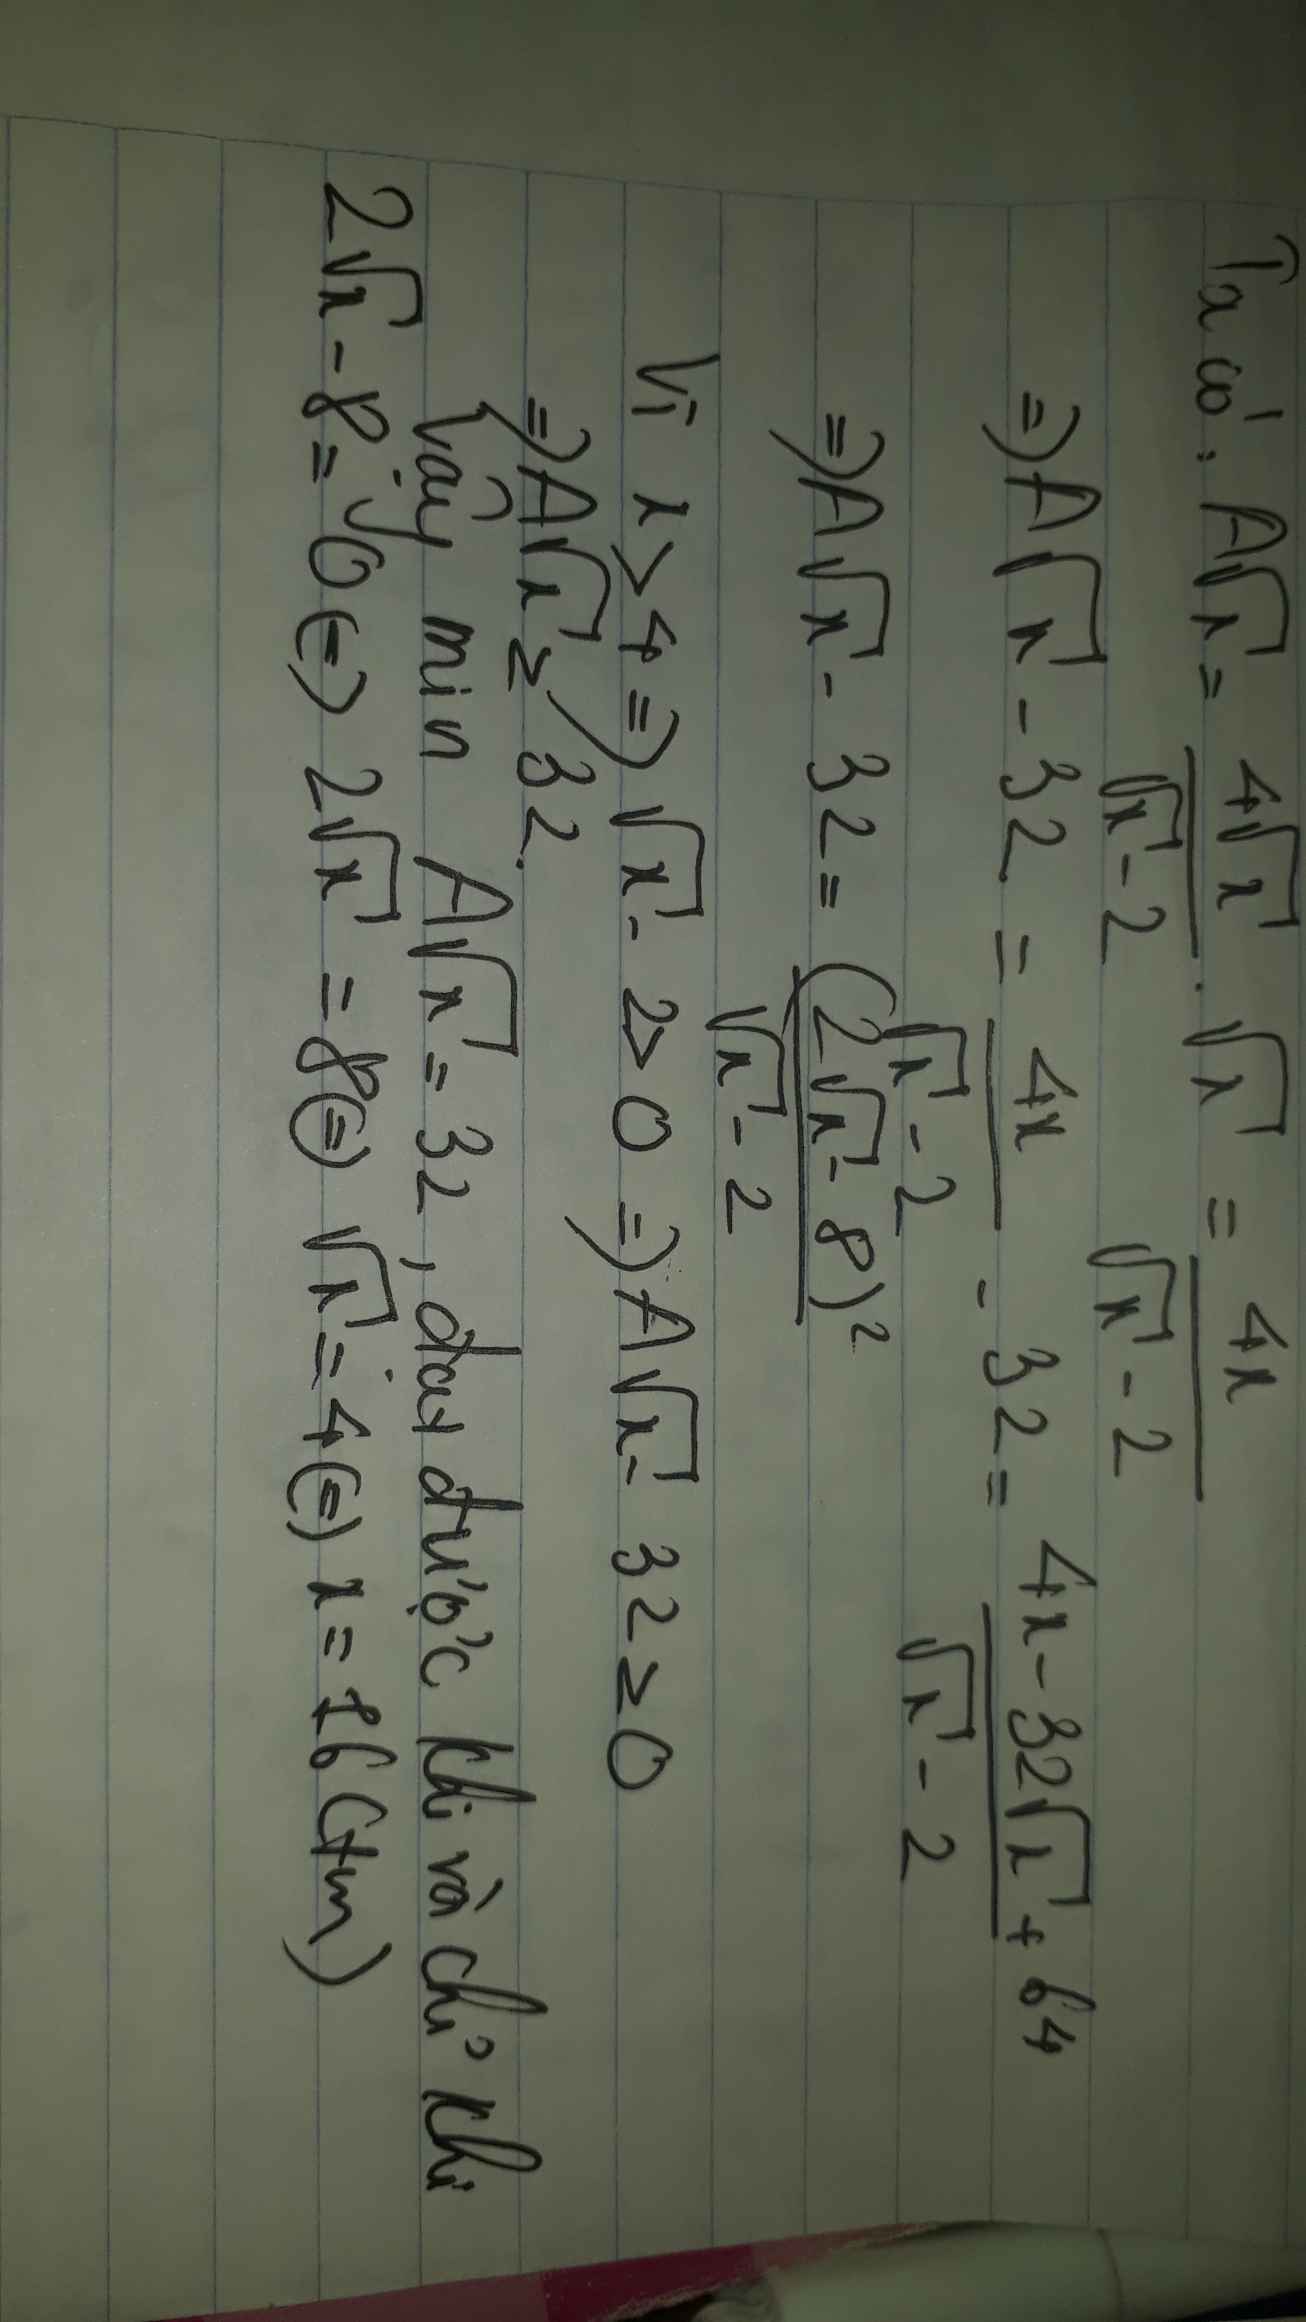 Ta có: A√x = 4√x/(√x - 2) . √x = 4x/(√x - 2)
=> A√x - 32 = 4x/(√x - 2) - 32 = (4x - 32√x + 64)/(√x - 2)
=> A√x - 32 = (2√x - 8)²/(√x - 2)
Vì x > 4 => √x - 2 > 0 => A√x - 32 ≥ 0
=> A√x ≥ 32.
Vậy min A√x = 32, đạt được khi và chỉ khi
2√x - 8 = 0 (=) 2√x = 8 (=) √x = 4 (=) x = 16 (tm)